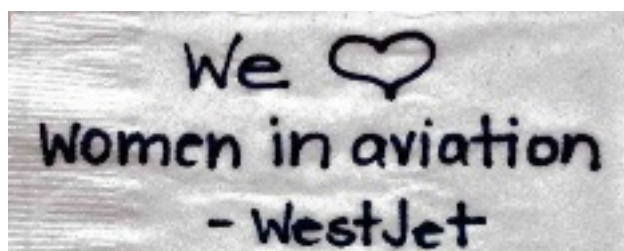 We ♡
women in aviation
- WestJet